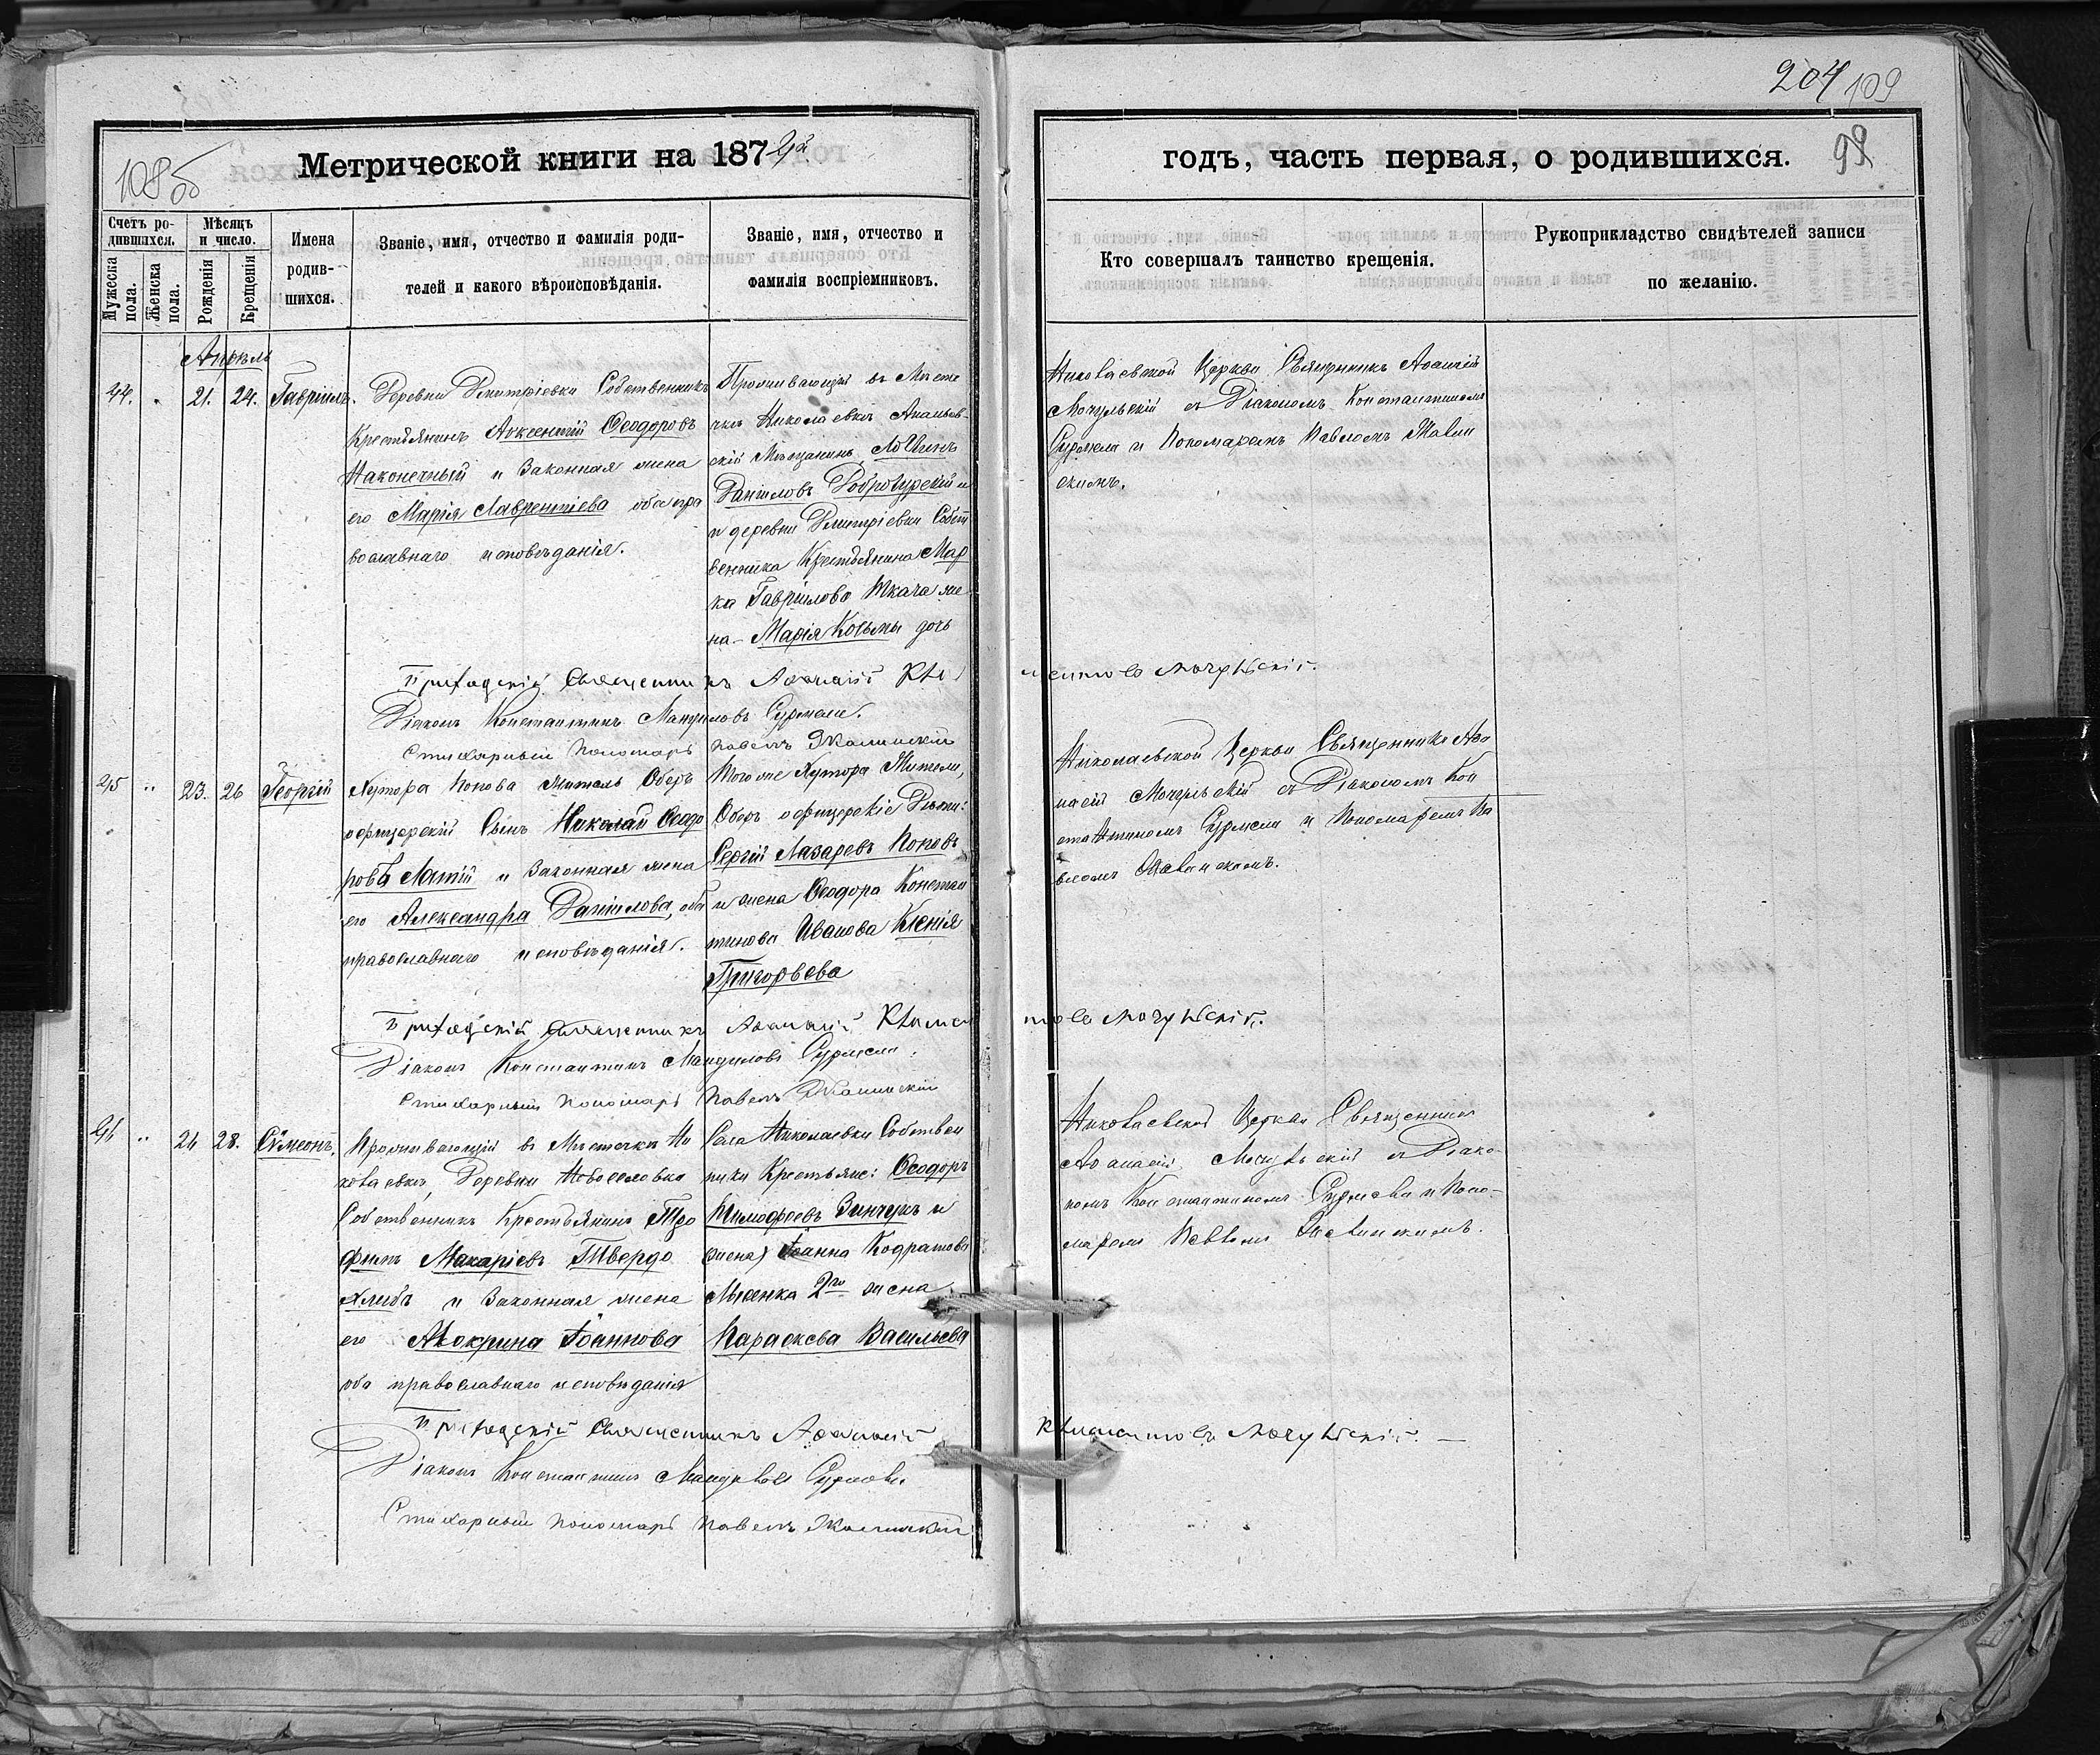 204 109
108 об
Метрической книги на 187
годъ, часть первая, о родившихся.
Счетъ ро-
дившихся.
Мужеска пола.
Женска пола.
Мѣсяцъ
и число.
Рожденія
Крещенія
Имена
родив-
шихся.
Званіе, имя, отчество и фамилія роди-
телей и какого вѣроисповѣданія.
Званіе, имя, отчество и
фамилія воспріемниковъ.
Кто совершалъ таинство крещенія.
Рукоприкладство свидѣтелей записи
по желанію.
Апрѣль
44. 21. 24. Гавріилъ.
Деревни Дмитріевки Собственникъ
Крестьянинъ Авксентій Ѳеодоровъ
Наконечный и Законная жена
его Марія Лаврентіева оба пра
вославнаго исповѣданія.
Проживающій въ Месте
чкѣ Николаевкѣ Ананьев-
скій Мѣщанинъ Логинъ
Даніиловъ и
и деревни Дмитріевки Собст
венника Крестьянина Мар
ка Гавріилова Ткача же
на Марія Козьмы дочь
Николаевской Церкви Священникъ Аѳанасій
Мочульскій съ Діакономъ Константиномъ
Сурмели и Пономаремъ Павломъ
скимъ.
Приходскій Священникъ Аѳанасій Кли
ментовъ Мочульскій.
Діаконъ Константинъ Сурмели.
Стихарный Пономарь Павелъ
45 23. 26 Георгій
Хутора Попова житель Оберъ
офицерскій Сынъ Николай Ѳеодо
ровъ Латій и Законная жена
его Александра Даніилова, оба
православнаго исповѣданія.
Того же Хутора Жители,
Оберъ офицерскіе Дѣти:
Сергій Лазаревъ Поповъ
и жена Ѳеодора Констан
тинова Иванова Ксенія
Григорьева
Николаевской Церкви Священникъ Аѳа
насій Мочульскій съ Діакономъ Кон
стантиномъ Сурмели и Пономаремъ Па
вломъ
Приходскій Священникъ Аѳанасій Климен
товъ Мочульскій.
Діаконъ Константинъ Сурмели.
Стихарный Пономарь Павелъ
46 24 28. Сѵмеонъ.
Проживающій въ Мѣстечкѣ Ни
колаевкѣ, Деревни Новоселовка
Собственникъ Крестьянинъ Тро
фимъ Макаріевъ Твердо
хлѣбъ и Законная жена
его Макрина Іоаннова
оба православнаго исповѣданія
Села Николаевки Собствен
ники Крестьяне: Ѳеодоръ
Тимофеевъ Зинчукъ и
жена Іоанна Кодратова
2го жена
Параскева Васильева
Николаевской Церкви Священникъ
Аѳанасій Мочульскій съ Діако-
номъ Константиномъ Сурмели и Поно-
маремъ Павломъ
Приходскій Священникъ Аѳанасій
Климентовъ Мочульскій.
Діаконъ Константинъ Сурмели
Стихарный Пономарь Павелъ